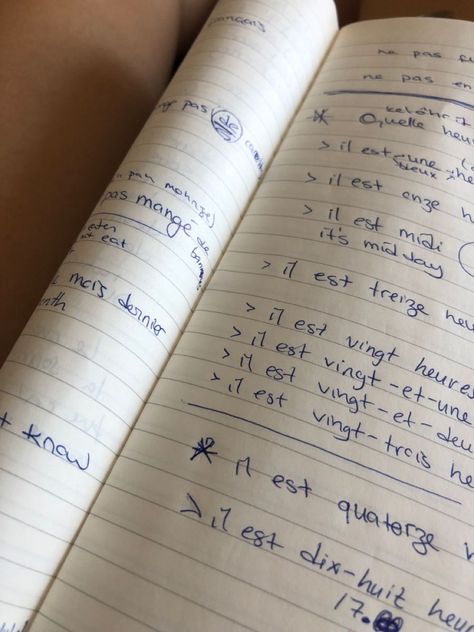 ançais
pas de
pas mangé de
eaten
not eat
mais dernier
nth
t know
ne pas
ne pas en
* Quelle heu
> il est une he
deux
> il est onze h
> il est midi
it's midday
> il est treize heu
> il est vingt heures
> il est vingt-et-une
> il est vingt-et-deu
> il est vingt-trois he
* il est quatorze
> il est dix-huit heu
17.